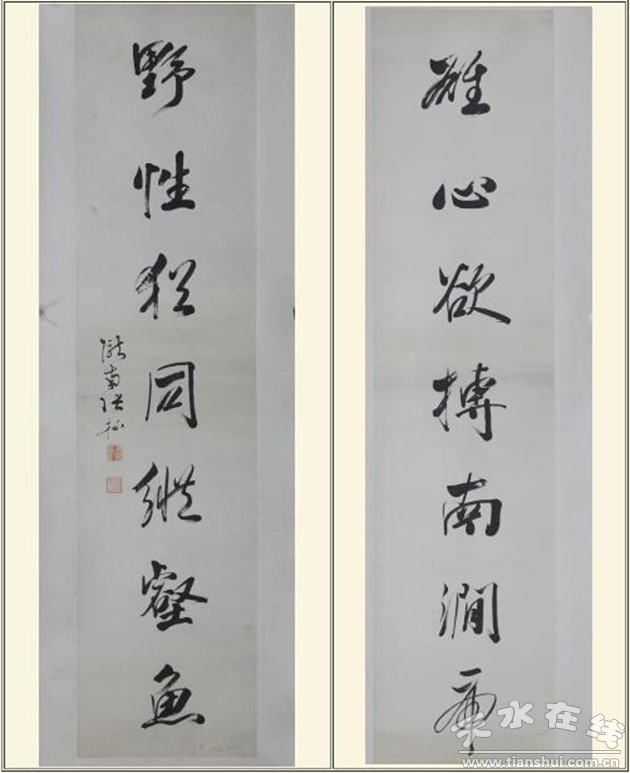 雄心欲搏南澗虎
野性猶同縱壑魚
隴南張
天水在线
www.tianshui.com.cn